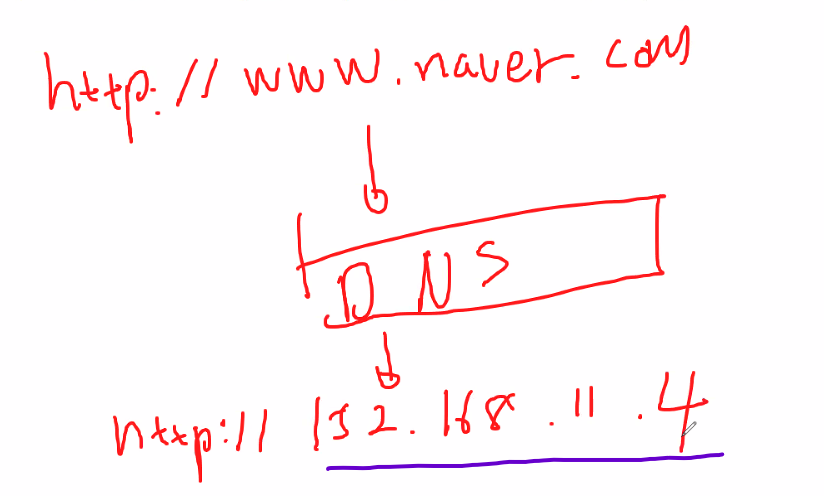 http://www.naver.com
DNS
http://192.168.11.4